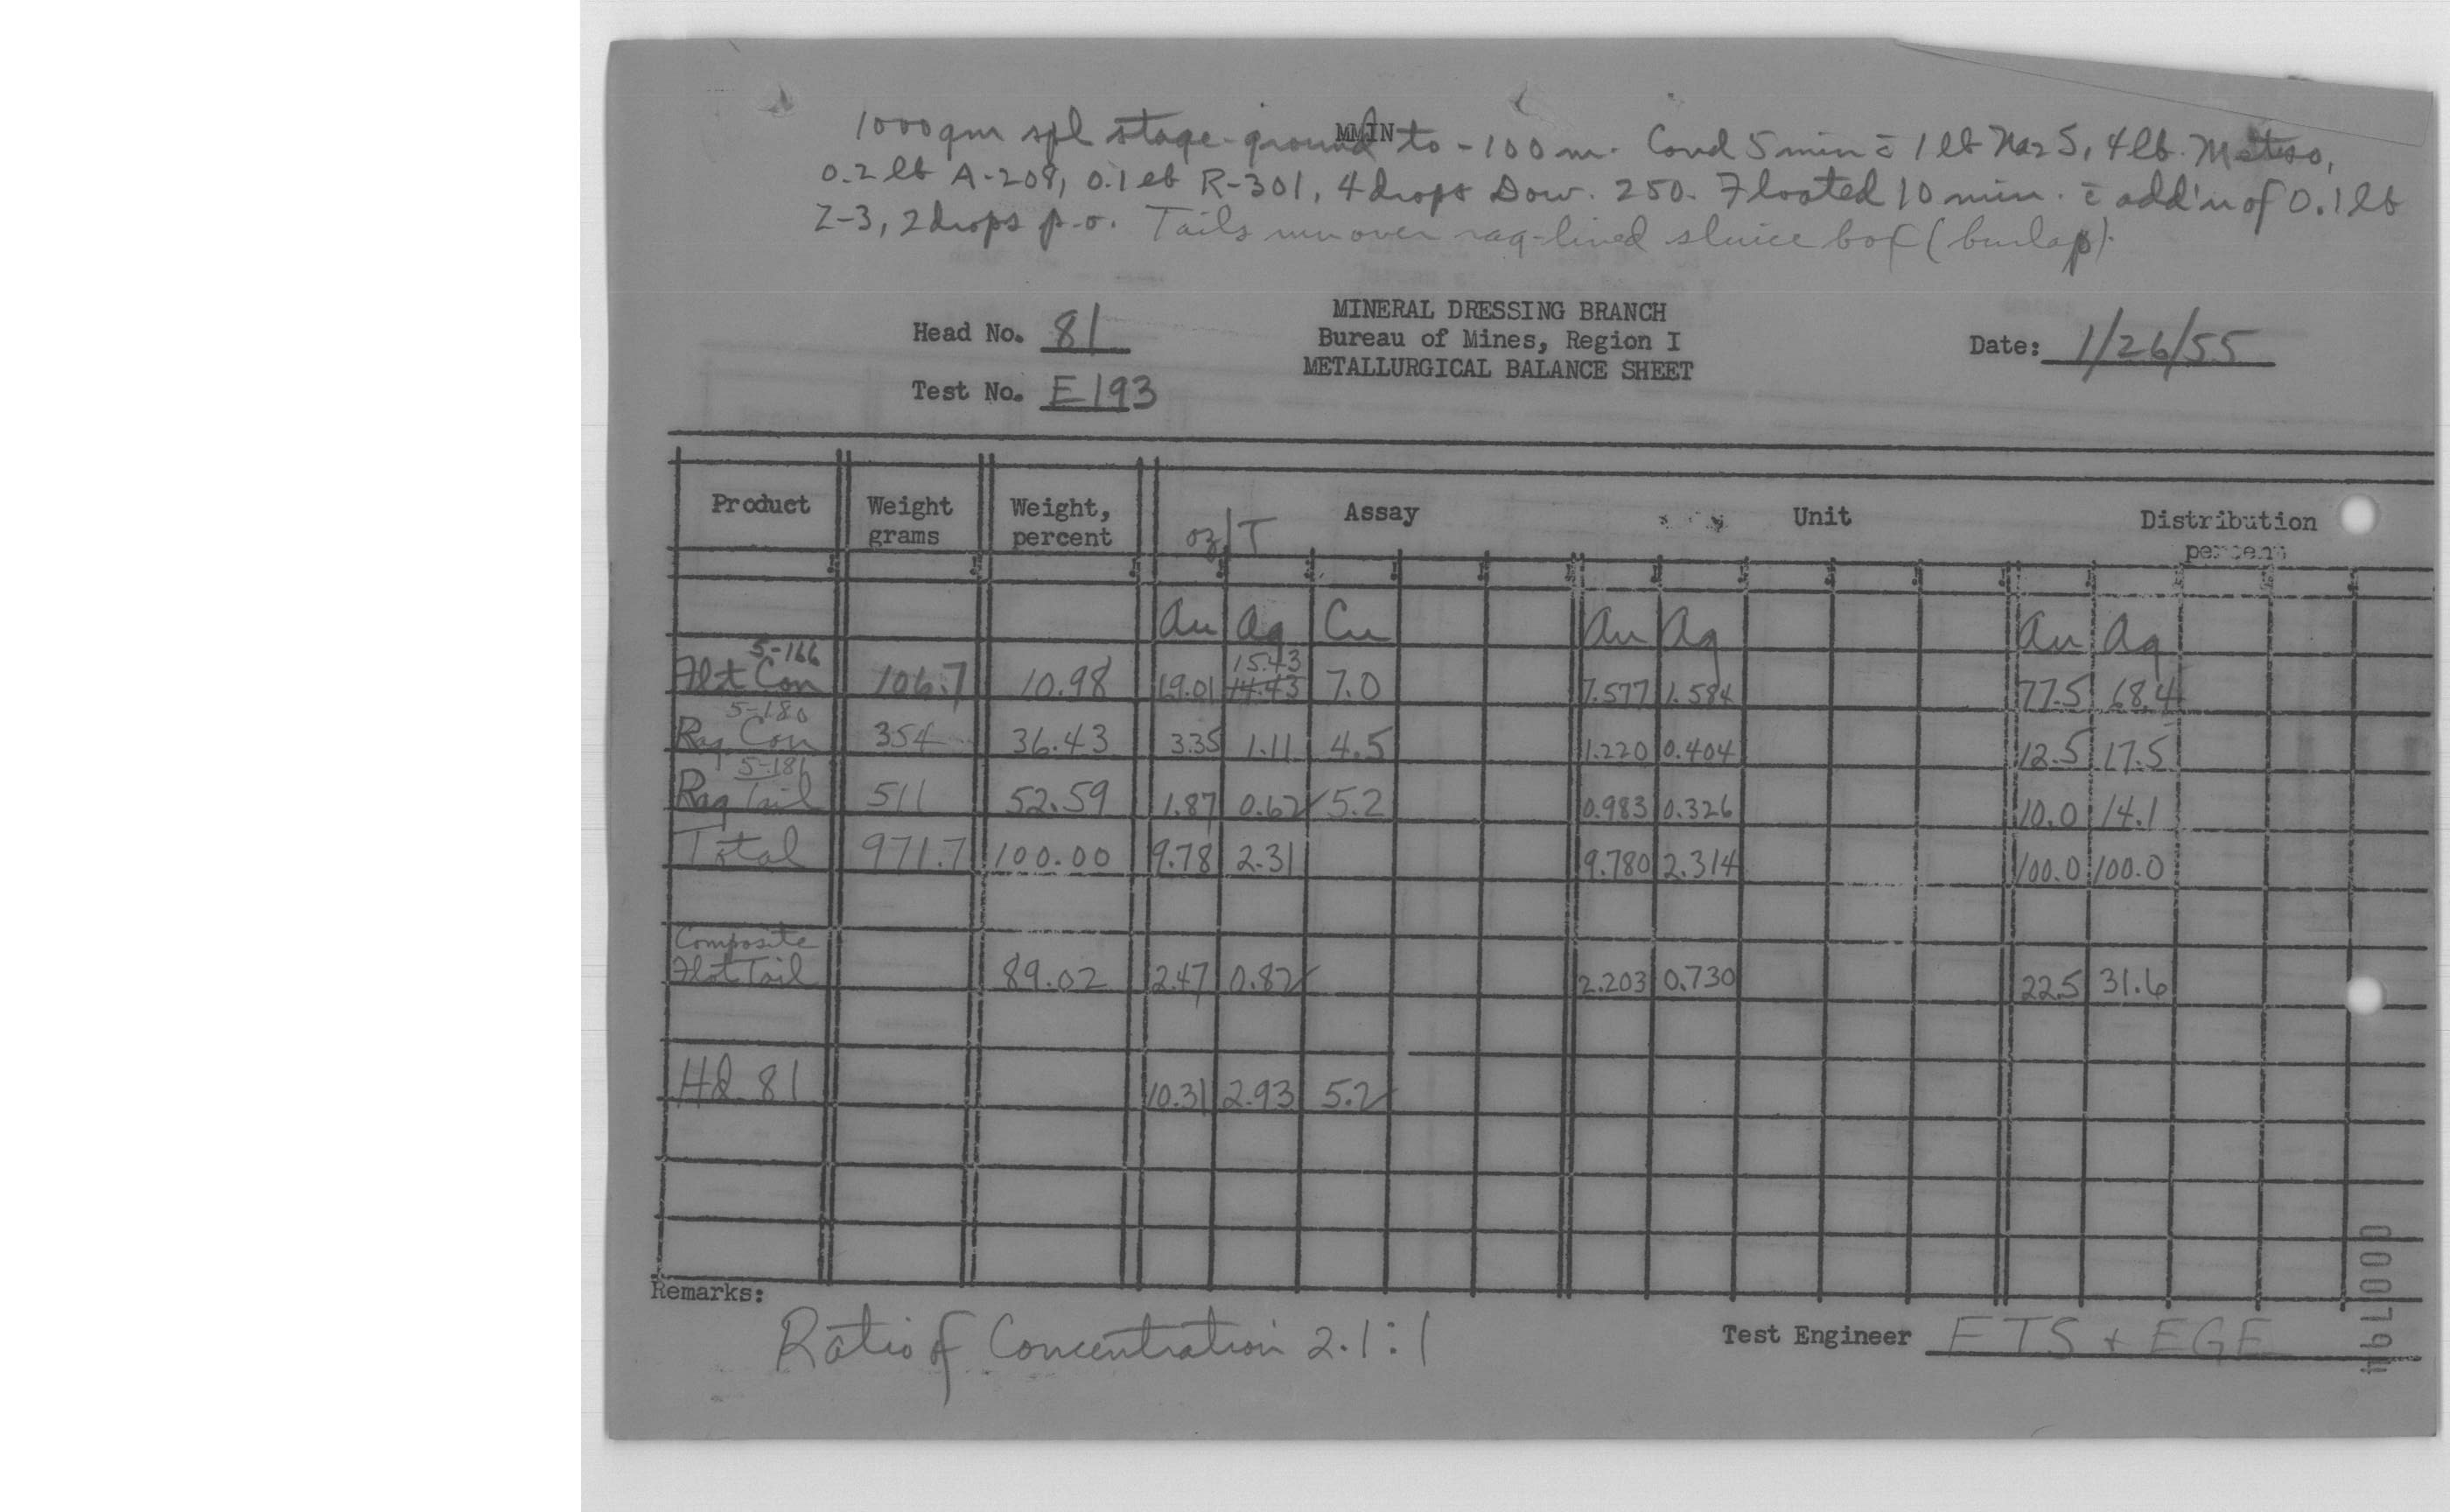 MMIN
1000 gm spl stage-ground to -100 m. Cond 5 min c̄ 1 lb Na2S, 4 lb. Metso,
0.2 lb A-208, 0.1 lb R-301, 4 drops Dow. 250. Floated 10 min. c̄ add'n of 0.1 lb
Z-3, 2 drops p.o. Tails run over rag-lined sluice box (burlap).
MINERAL DRESSING BRANCH
Head No. 81 Bureau of Mines, Region I Date: 1/26/55
METALLURGICAL BALANCE SHEET
Test No. E193
Product Weight grams Weight, percent oz/T Assay Unit Distribution percent
Au Ag Cu Au Ag Au Ag
5-166 15.43
Flot Con 106.7 10.98 69.01 14.43 7.0 7.577 1.584 77.5 68.4
5-180
Rag Con 354 36.43 3.35 1.11 4.5 1.220 0.404 12.5 17.5
5-181
Rag Tail 511 52.59 1.87 0.62 5.2 0.983 0.326 10.0 14.1
Total 971.7 100.00 9.78 2.31 9.780 2.314 100.0 100.0
Composite
Flot Tail 89.02 2.47 0.82 2.203 0.730 22.5 31.6
Hd 81 10.31 2.93 5.2
Remarks:
Ratio of Concentration 2.1:1
Test Engineer FTS + EGE